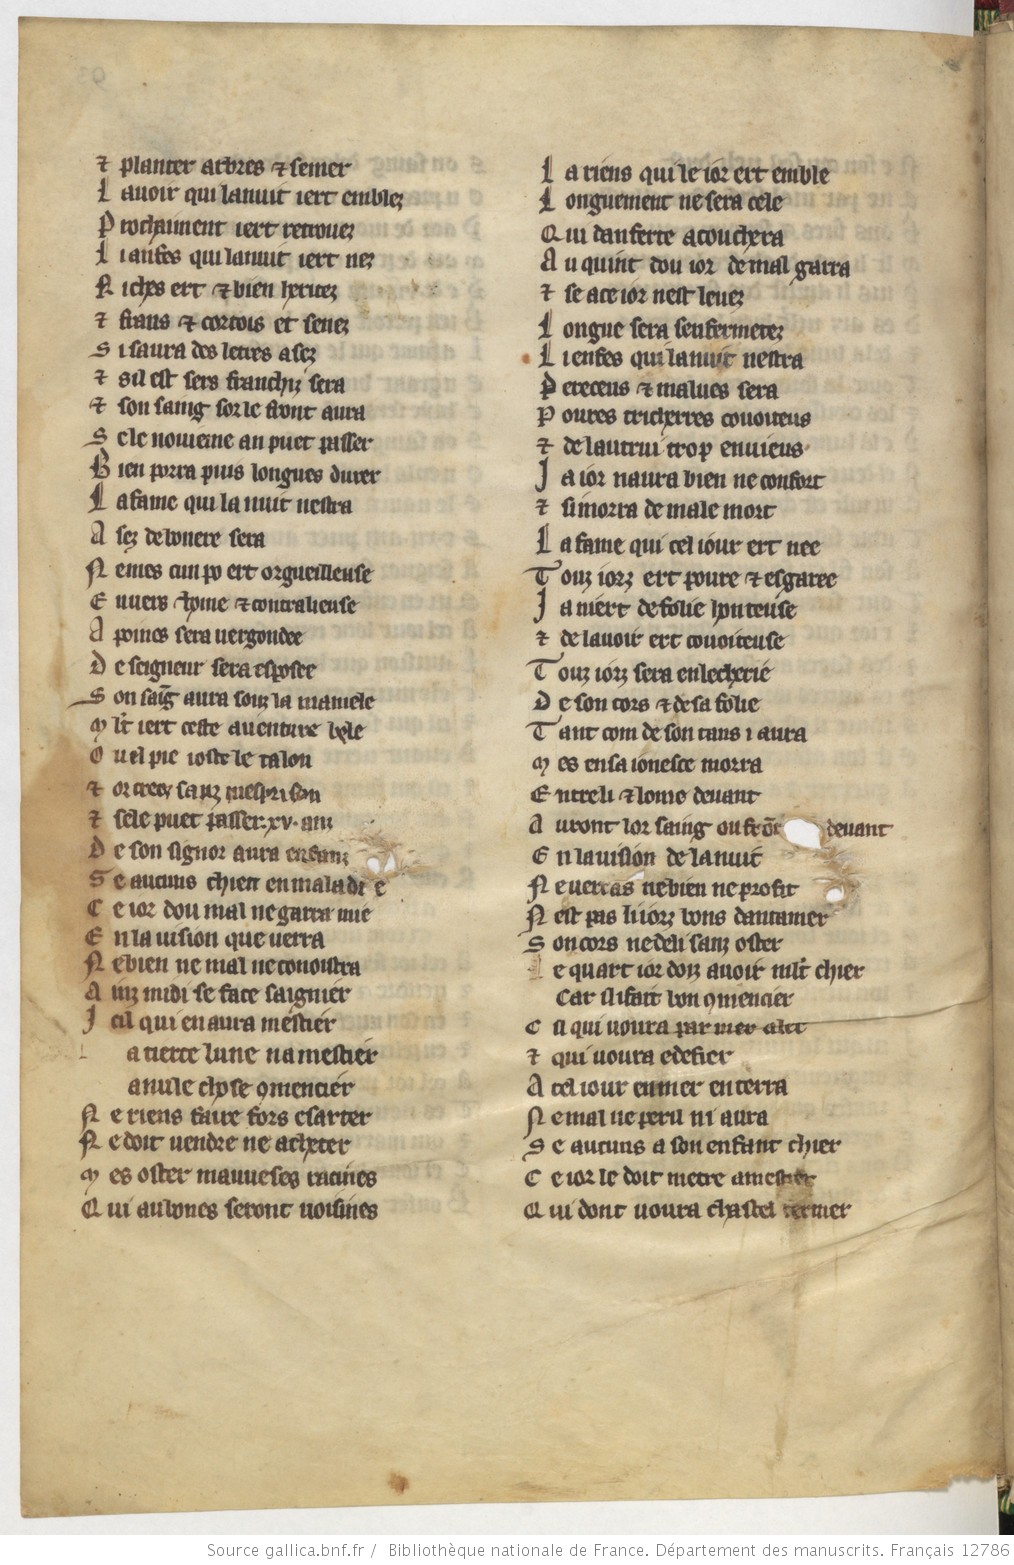 ⁊ planter arbres ⁊ semer
L avoir qui lanuit iert emblez
P rochainment iert retrouez
L i anfes qui lanuit iert nez
R iches ert ⁊ bien heritez
⁊ frans ⁊ cortois et senez
S i saura des letres asez
⁊ sil est sers franchiz sera
⁊ son saing sor le front aura
S ele nouieme an puet passer
B ien porra puis longues durer
L a fame qui la nuit nestra
A sez de bonere sera
N emes cun po ert orgueilleuse
E nuers home ⁊ contralieuse
A poines sera uergondee
D e seigneur sera esposee
S on saīg aura souz la mamele
M lt iert ceste auenture bele
O u el pie ioste le talon
⁊ or creez sanz mesprison
⁊ sele puet passer .xv. anz
D e son signor aura enfanz
S e aucuns chiet en maladie
C e ior dou mal ne garra mie
E n la uision que uerra
N e bien ne mal ne conoistra
A inz midi se face saignier
I cil qui en aura mestier
L a tierce lune na mestier
a nule chose ꝯmencier
N e riens faire fors esarter
N e doit uendre ne acheter
M es oster mauueses racines
Q ui aus bones seront uoisines
L a riens qui le ior ert emble
L onguement ne sera cele
Q ui danferte acouchera
A u quint dou ior de mal garra
⁊ se a ce ior nest leuez
L ongue sera senfermetez
L i enfes qui lanuit nestra
P ereceus ⁊ malues sera
P oures tricherres couoiteus
⁊ de lautrui trop enuieus
J a ior naura bien ne confort
⁊ si morra de male mort
L a fame qui cel iour ert nee
T ouz iorz ert poure ⁊ esgaree
J a niert de folie honteuse
⁊ de lauoir ert couoiteuse
T ouz iorz sera en lecherie
D e son cors ⁊ de sa folie
T ant com de son tans i aura
M es en sa ionesce morra
E ntre li ⁊ lome deuant
A uront lor saing ou frōt deuant
E n la uision de la nuit
N e uertas ne bien ne profit
N est pas li iorz bons dantamer
S on cors ne de li sanz oster
L e quart ior doiz auoir mlt chier
Car il fait bon ꝯmencier
C il qui uoura par mer aler
⁊ qui uoura edefier
A cel iour en mer en terra
N e mal ne peril ni aura
S e aucuns a son enfant chier
C e ior le doit metre a mestier
Q ui dont uoura chastel fermer
Source gallica.bnf.fr / Bibliothèque nationale de France. Département des manuscrits. Français 12786